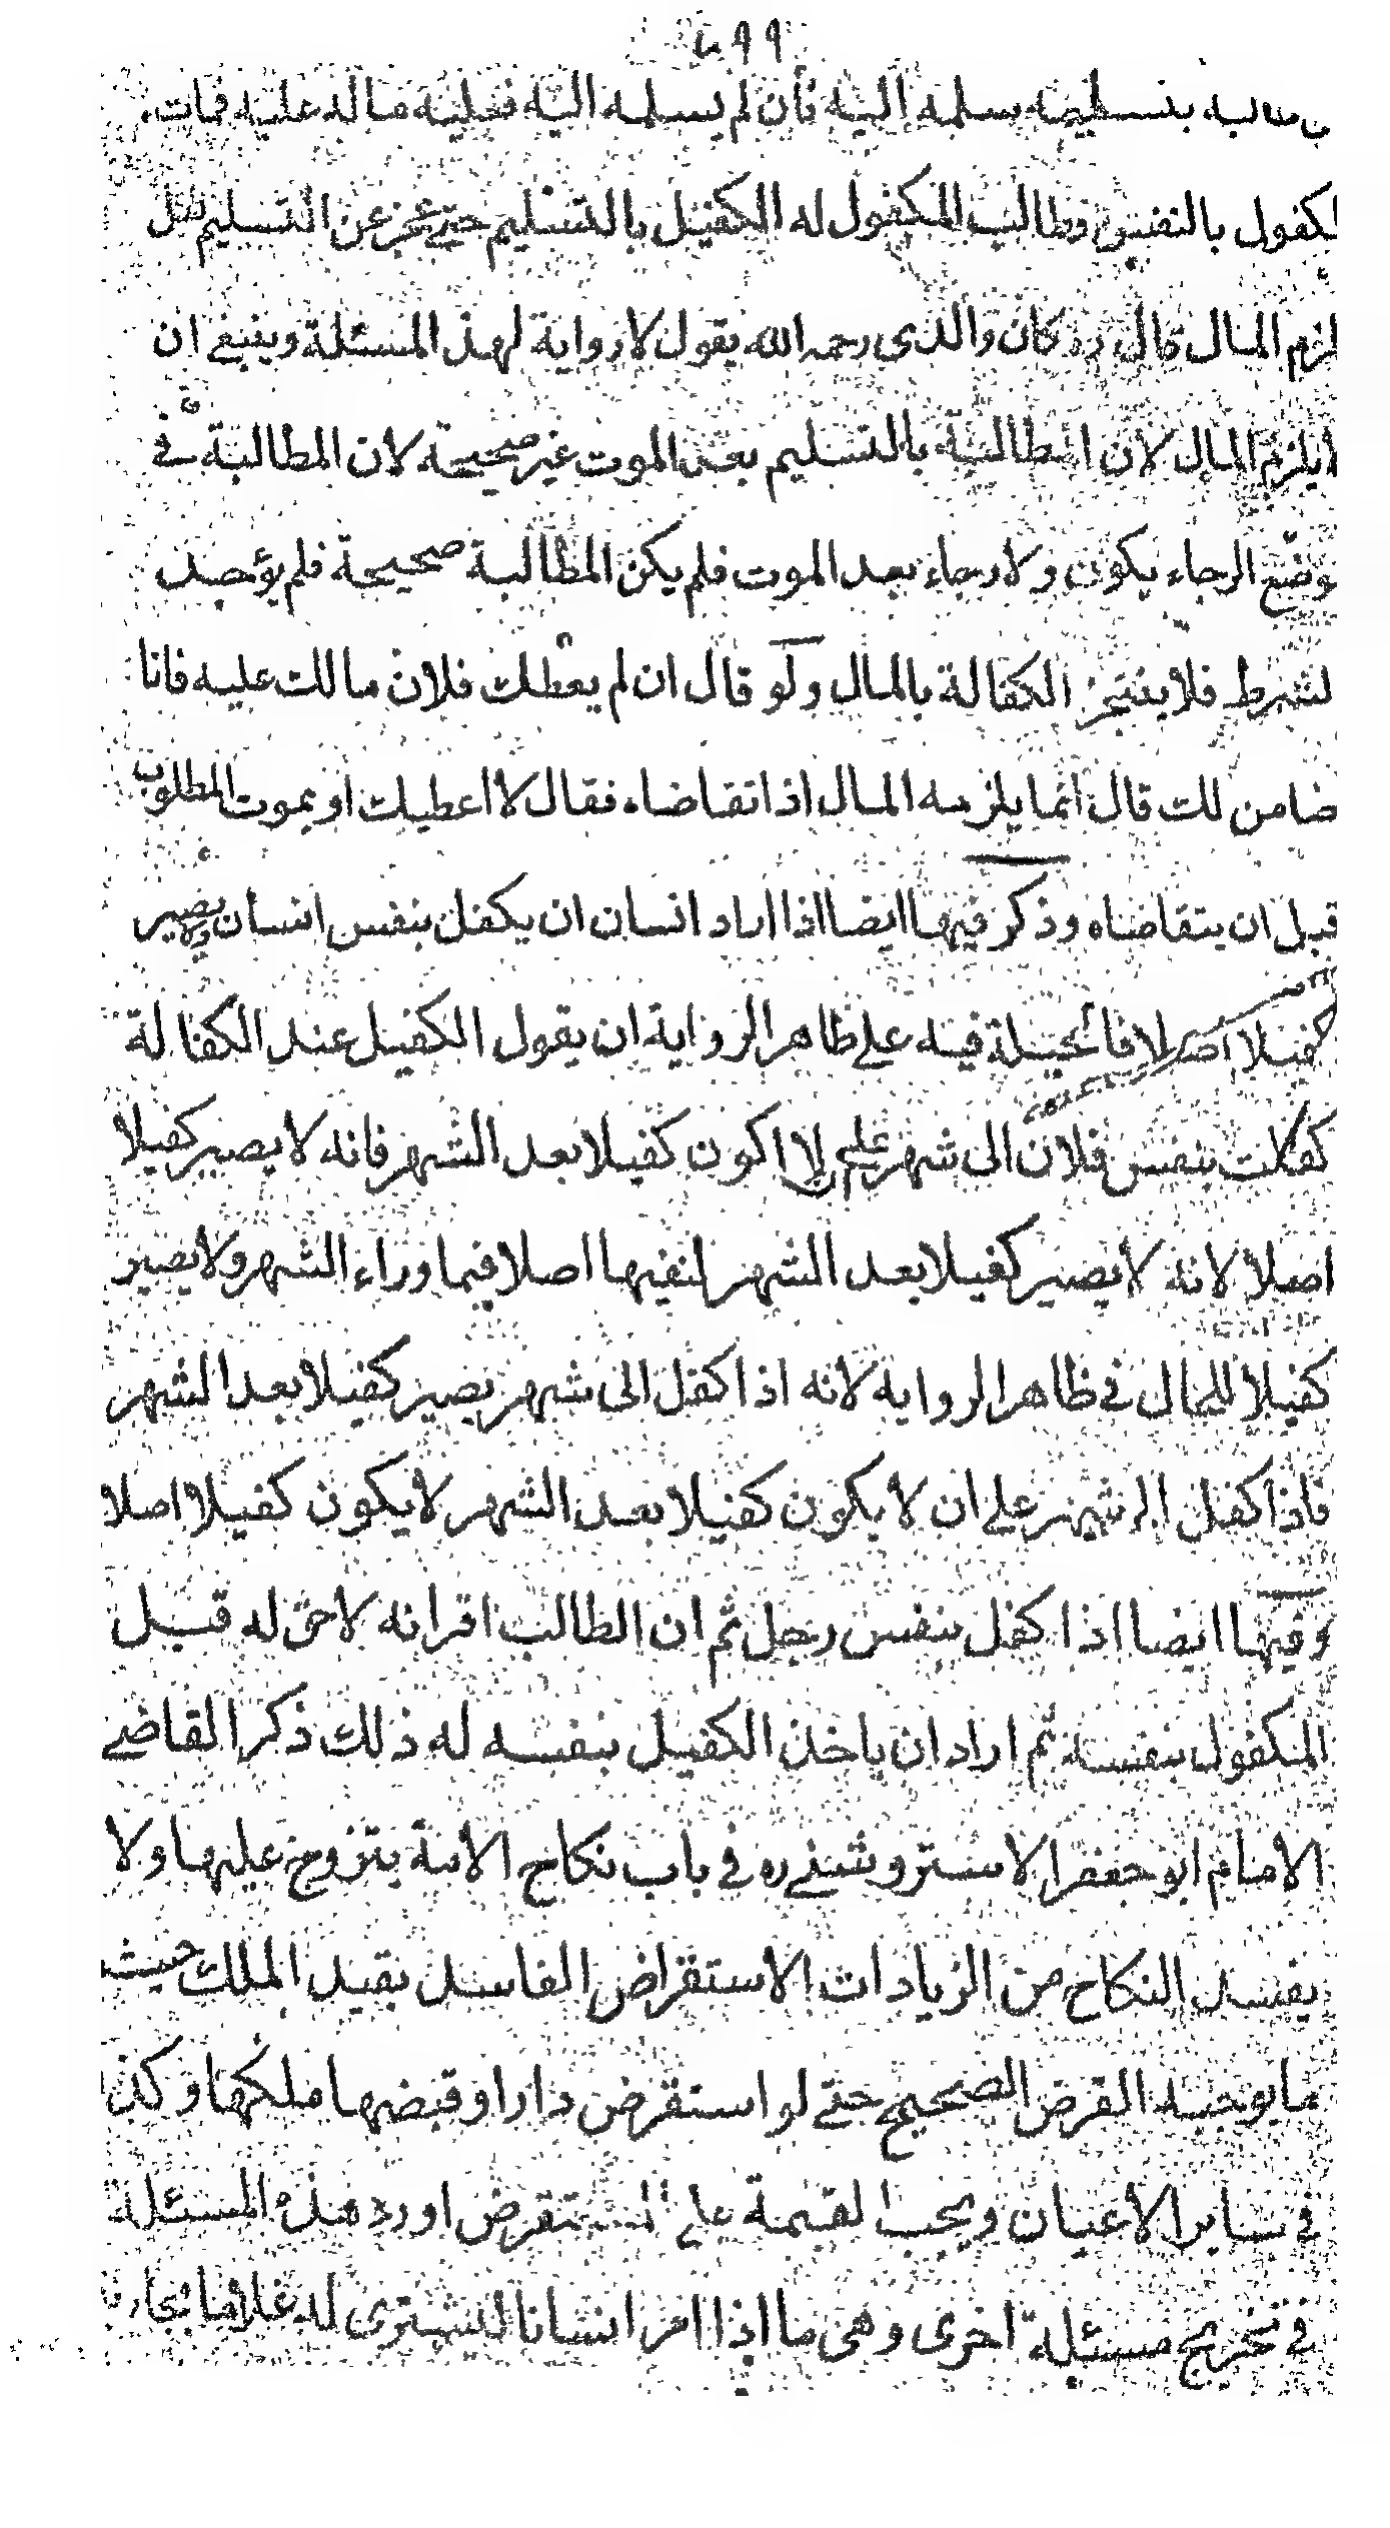 طالبه بتسليمه يسلمه اليه فان لم يسلمه اليه فعليه ماله عليه فمات
لكفول بالنفس وطالب المكفول له الكفيل بالتسليم حتى عجز عن التسليم هل
لزم المال قال ره كان والدى رحمه الله يقول لا رواية لهذ المسئلة وينبغى ان
لا يلزم المال لان المطالبة بالتسليم بعد الموت غير صحيحة لان المطالبة فى
وضع الرجاء يكون ولا رجاء بعد الموت فلم يكن المطالبة صحيحة فلم يؤجد
لشرط فلا يتنجز الكفالة بالمال ولو قال ان لم يعطك فلان مالك عليه فانا
ضامن لك قال انما يلزمه المال اذا تقاضاه فقال لا اعطيك او يموت المطلوب
قبل ان يتقاضاه وذكر فيها ايضا اذا اراد انسان ان يكفل بنفس انسان ولا يصير
كفيلا اصلا فالحيلة فيه على ظاهر الرواية ان يقول الكفيل عند الكفالة
كفلت بنفس فلان الى شهر على ان لا اكون كفيلا بعد الشهر فانه لا يصير كفيلا
اصلا لانه لا يصير كفيلا بعد الشهر لنفيها اصلا فيما وراء الشهر ولا يصير
كفيلا للحال فى ظاهر الرواية لانه اذا كفل الى شهر يصير كفيلا بعد الشهر
فاذا كفل الى شهر على ان لا يكون كفيلا بعد الشهر لا يكون كفيلا اصلا
وفيها ايضا اذا كفل بنفس رجل ثم ان الطالب اقر انه لا حق له قبل
المكفول بنفسه ثم اراد ان ياخذ الكفيل بنفسه له ذلك ذكر القاضى
الامام ابو جعفر الاستروشنى ره فى باب نكاح الامة يتزوج عليها ولا
يفسد النكاح من الزيادات الاستقراض الفاسد يفيد الملك حيث
ما يوجبه القرض الصحيح حتى لو استقرض دارا وقبضها ملكها وكذا
فى ساير الاعيان ويجب القيمة على المستقرض اورد هذه المسئلة
فى تخريج مسئلة اخرى وهى ما اذا امر انسانا ليشترى له غلاما بجارية